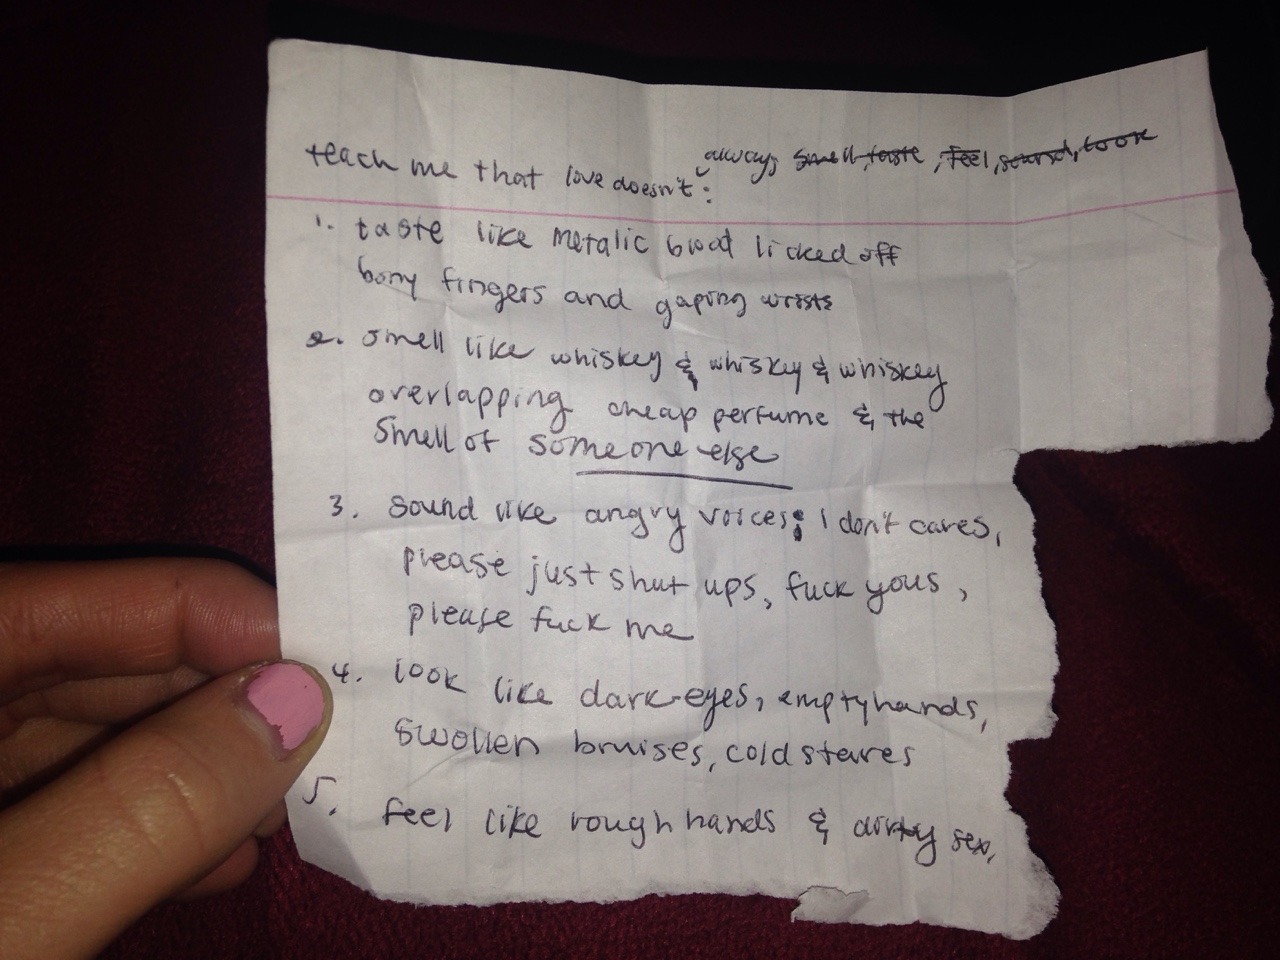 teach me that love doesn't: always smell, taste, feel, sound, look
1. taste like metalic blood licked off
bony fingers and gaping wrists
2. smell like whiskey & whiskey & whiskey
overlapping cheap perfume & the
smell of someone else
3. sound like angry voices; I don't cares,
please just shut ups, fuck yous,
please fuck me
4. look like dark eyes, empty hands,
swollen bruises, cold stares
5. feel like rough hands & dirty sex.